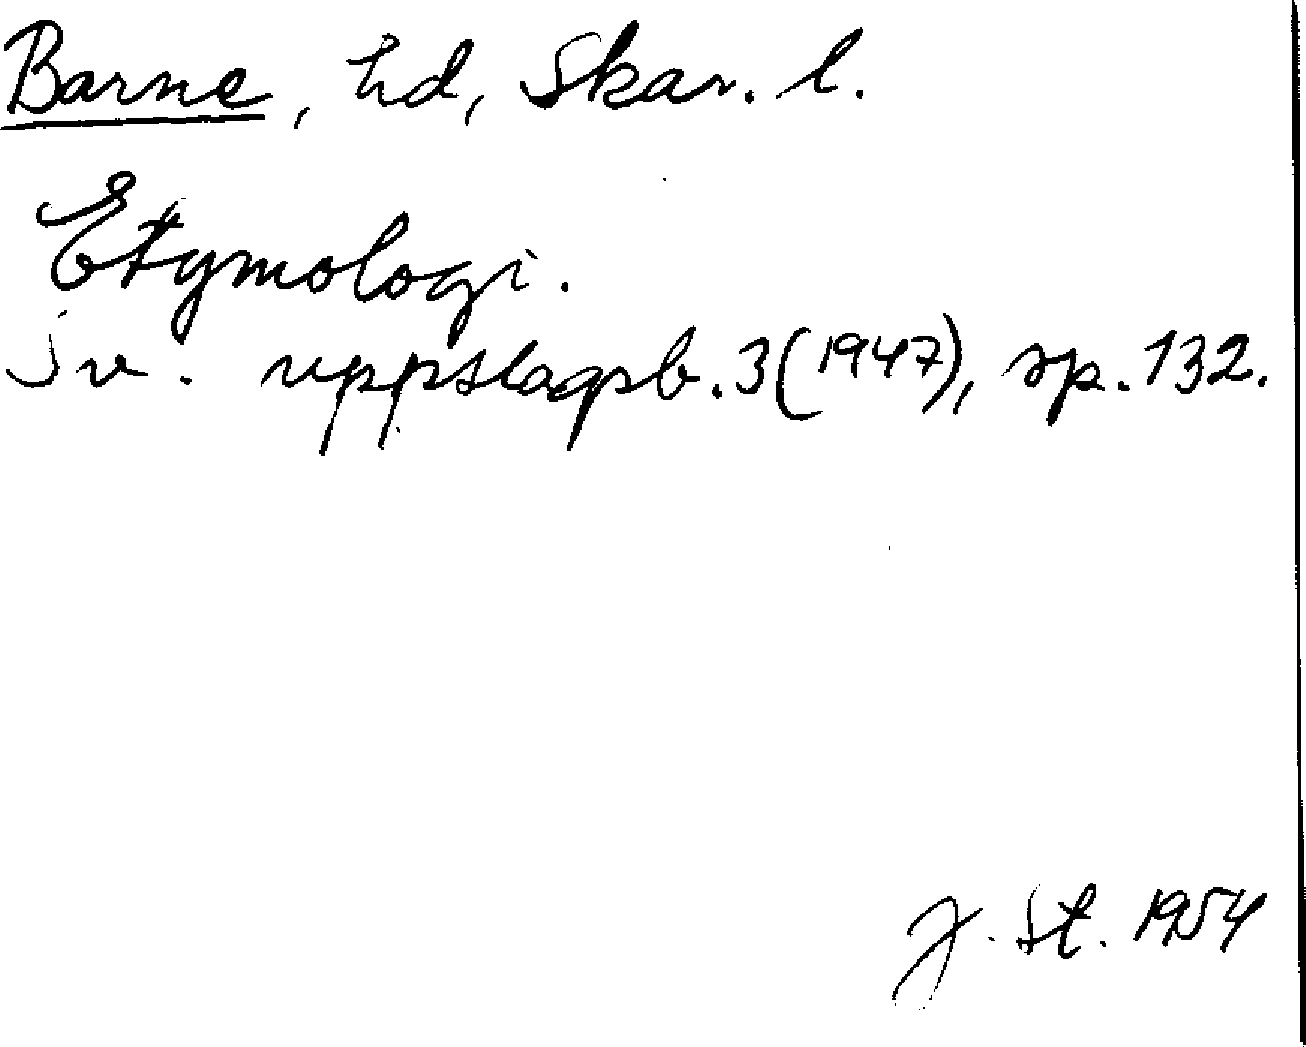 Barne, hd, Skar. l.
Etymologi.
Sv. uppslagsb. 3 (1947), sp. 132.
J. St. 1954